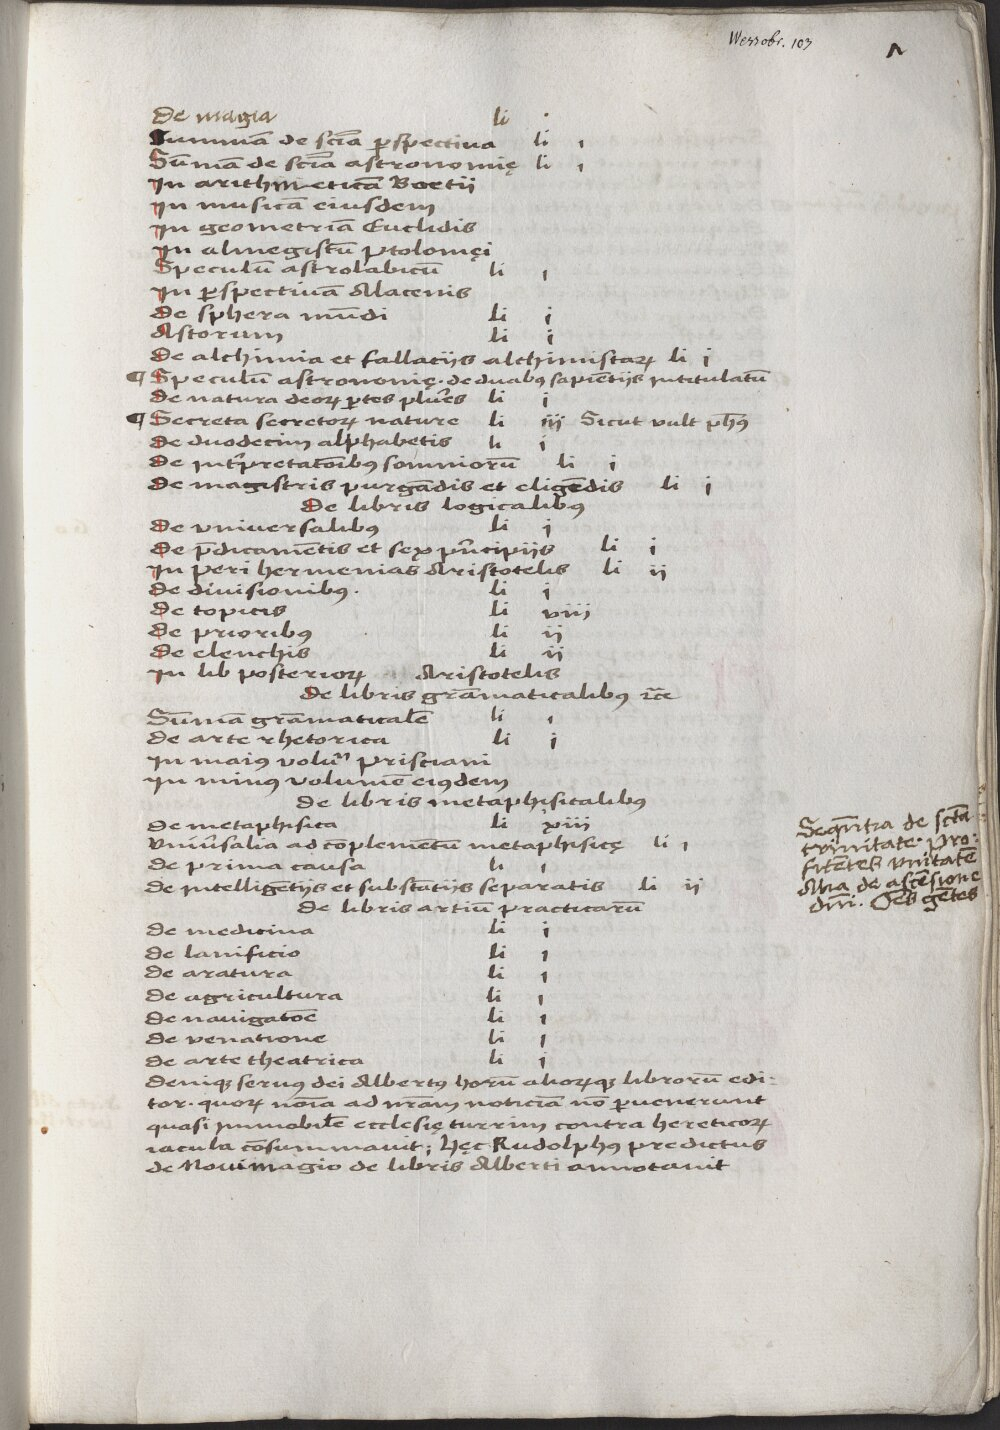 Wessobr. 103
1
De magia li i
Summā de sciā pspectiua li i
Sūmā de sciā astronomię li i
In arithmeticā Boetij
In musicā eiusdem
In geometriā Euclidis
In almegistū Ptolomęi
Speculū astrolabicū li i
In pspectiuā Alacenis
De sphera mūdi li j
Astorum li j
De alchimia et fallacijs alchimistaꝝ li j
¶ Speculū astronomię. de duabꝰ sapiētijs intitulatū
De natura deoꝝ ptes plures li j
¶ Secreta secretoꝝ nature li iij Sicut vult phꝰ
De duodecim alphabetis li j
De intpretatōibus somniorū li j
De magistris purgādis et eligēdis li j
De libris logicalibꝰ
De vniuersalibꝰ li j
De p̄dicamētis et sex pncipijs li j
In peri hermenias Aristotelis li ij
De diuisionibꝰ. li j
De topicis li viij
De prioribꝰ li ij
De elenchis li ij
In lib posterioꝝ Aristotelis
De libris grāmaticalibꝰ
Sūmā grāmaticalē li i
De arte rhetorica li j
In maiꝰ volu Prisciani
In minꝰ volumē eiꝰdem
De libris metaphisicalibꝰ
De metaphisica li xiij
Vniuersalia ad cōplementū metaphisicę li i
De prima causa li i
De intelligētijs et substātijs separatis li ij
De libris artiū practicarū
De medicina li j
De lanificio li i
De aratura li i
De agricultura li i
De nauigatōe li i
De venatione li i
De arte theatrica li j
Deniqꝫ seruꝰ dei Albertꝰ horū alioꝝqꝫ librorū edi-
tor. quoꝝ noīa ad nram noticiā nō puenerunt
quasi immobilē ecclesię turrim contra hereticoꝝ
iacula cōsummauit; Hęc Rudolphꝰ predictus
de Nouimagio de libris Alberti annotauit
Seqn̄tia de sctā
trinitate. Pro-
fitētes vnitatē
Alia de ascēsione
dn̄i. Oēs gētes